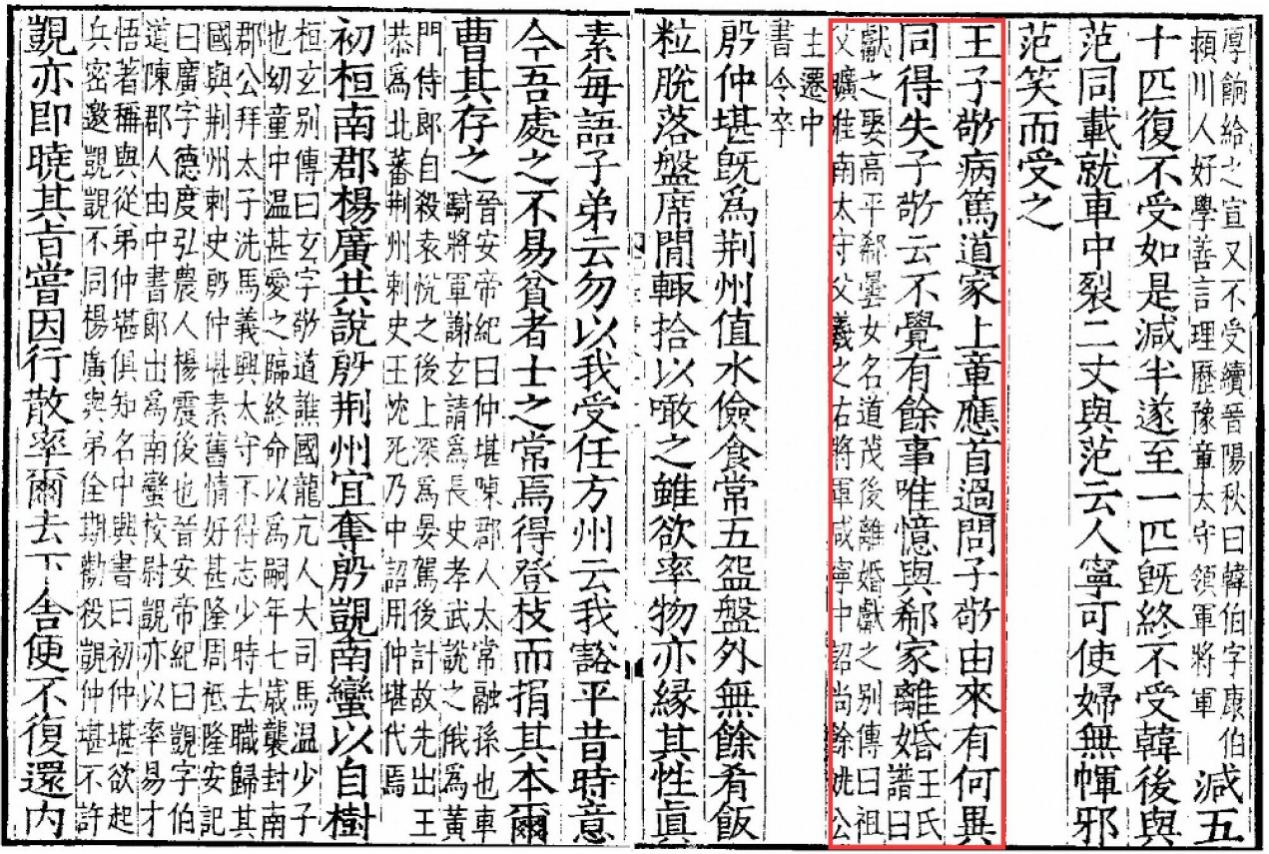 厚餉給之宣又不受續晉陽秋曰韓伯字康伯
潁川人好學善言理歷豫章太守領軍將軍
減五
十匹復不受如是減半遂至一匹既終不受韓後與
范同載就車中裂二丈與范云人寧可使婦無幝邪
范笑而受之
王子敬病篤道家上章應首過問子敬由來有何異
同得失子敬云不覺有餘事唯憶與郗家離婚
王氏
譜曰
獻之娶高平郗曇女名道茂後離婚獻之别傳曰祖
父曠淮南太守父羲之右將軍咸寧中詔尚餘姚公
主遷中
書令卒
殷仲堪既爲荆州值水儉食常五盌盤外無餘肴飯
粒脫落盤席閒輒拾以噉之雖欲率物亦緣其性真
素每語子弟云勿以我受任方州云我豁平昔時意
今吾處之不易貧者士之常焉得登枝而捐其本爾
曹其存之
晉安帝紀曰仲堪陳郡人太常融孫也車
騎將軍謝玄請爲長史孝武說之俄爲黃
門侍郎自殺袁悅之後上深爲晏駕後計故先出王
恭爲北蕃荆州刺史王忱死乃中詔用仲堪代焉
初桓南郡楊廣共說殷荆州宜奪殷覬南蠻以自樹
桓玄别傳曰玄字敬道譙國龍亢人大司馬温少子
也幼童中温甚愛之臨終命以爲嗣年七歲襲封南
郡公拜太子洗馬義興太守不得志少時去職歸其
國與荆州刺史殷仲堪素舊情好甚隆周祗隆安記
曰廣字德度弘農人楊震後也晉安帝紀曰覬字伯
道陳郡人由中書郎出爲南蠻校尉覬亦以率易才
悟著稱與從弟仲堪俱知名中興書曰初仲堪欲起
兵密邀覬覬不同楊廣與弟佺期勸殺覬仲堪不許
覬亦即曉其旨嘗因行散率爾去下舍便不復還内